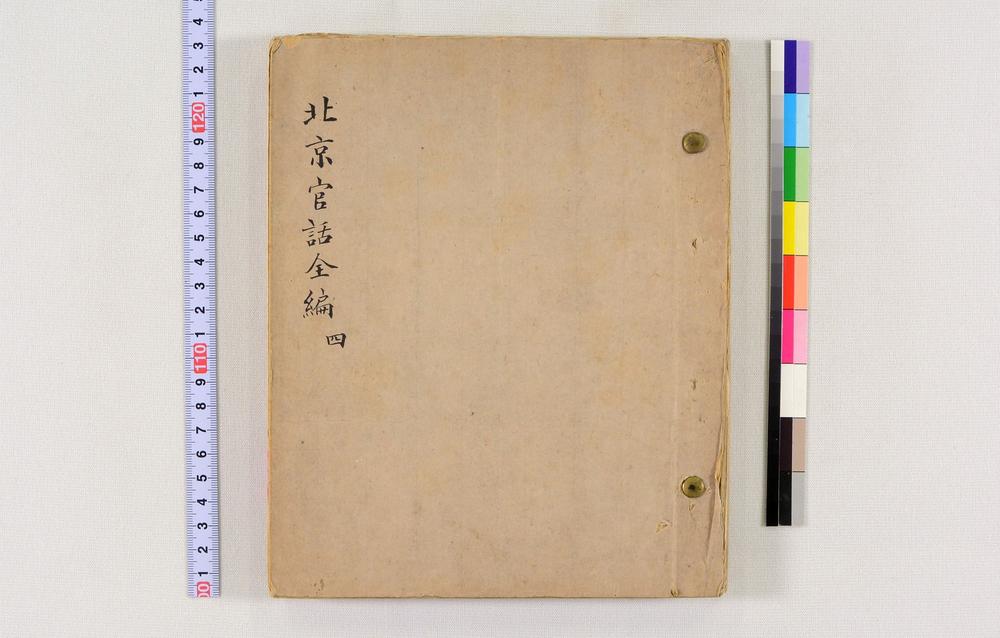 北京官話全編
四
4
3
2
1
120
9
8
7
6
5
4
3
2
1
110
9
8
7
6
5
4
3
2
1
00